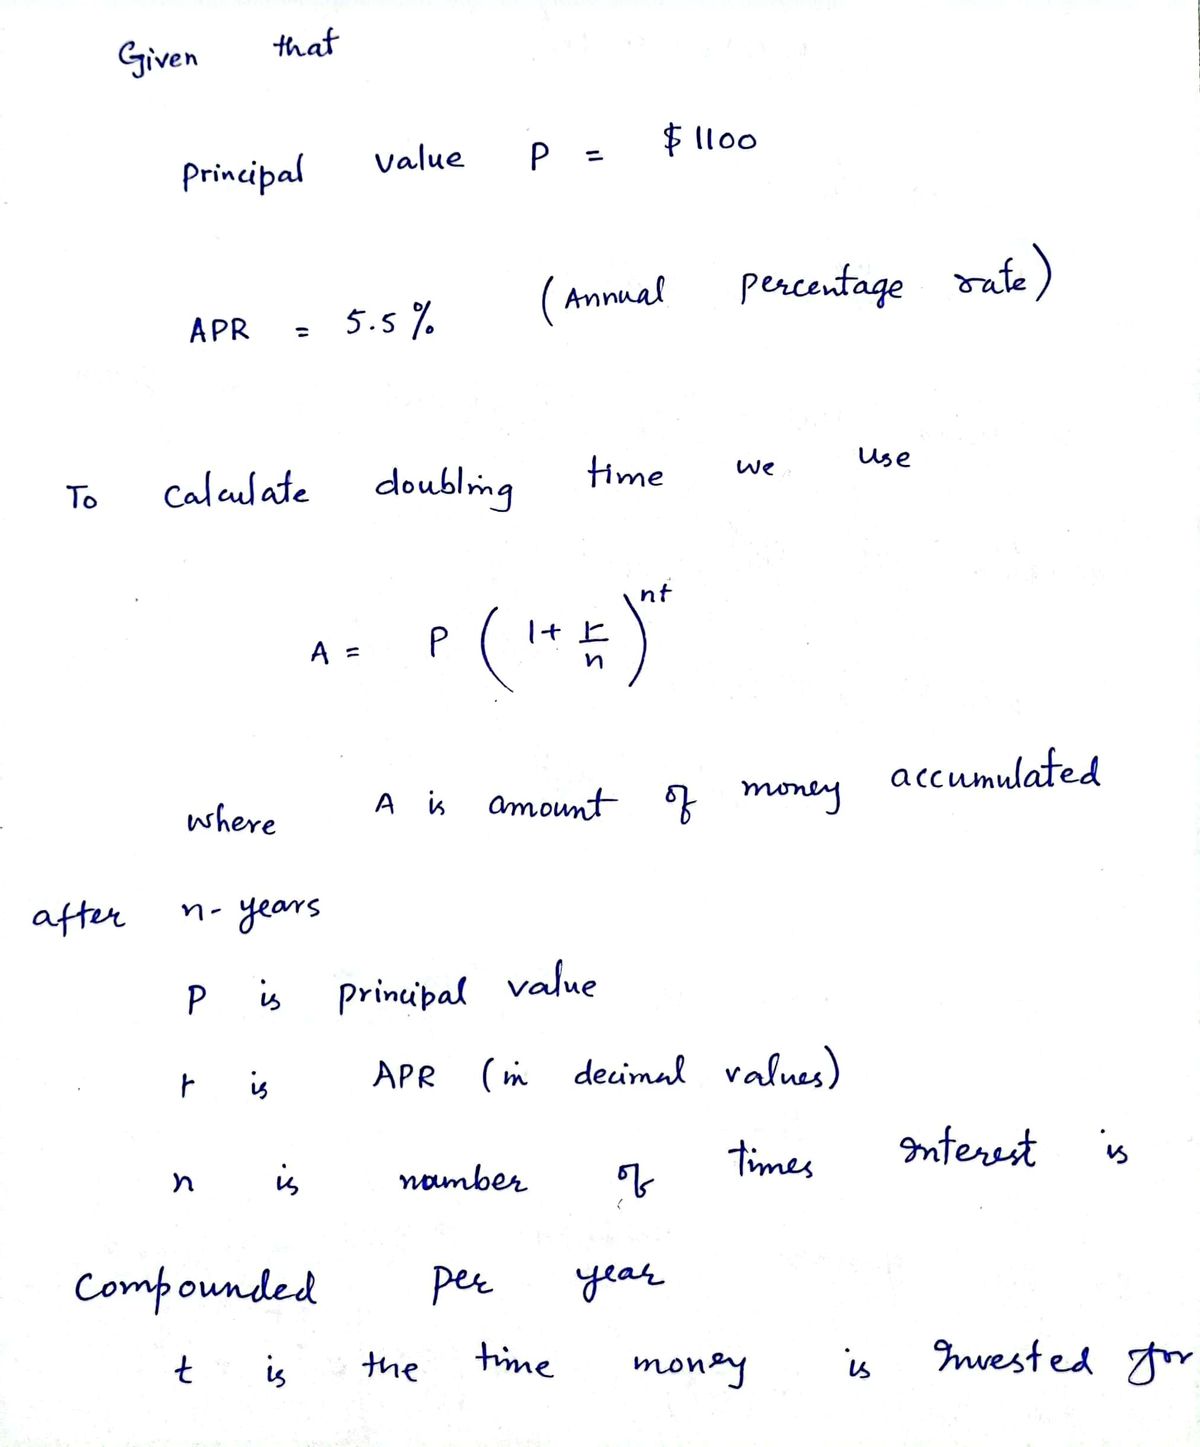 Given that
Principal value P = $ 1100
APR = 5.5 % (Annual percentage rate)
To calculate doubling time we use
A = P ( 1 + r/n )^nt
where A is amount of money accumulated
after n-years
P is principal value
r is APR (in decimal values)
n is number of times interest is
Compounded per year
t is the time money is invested for